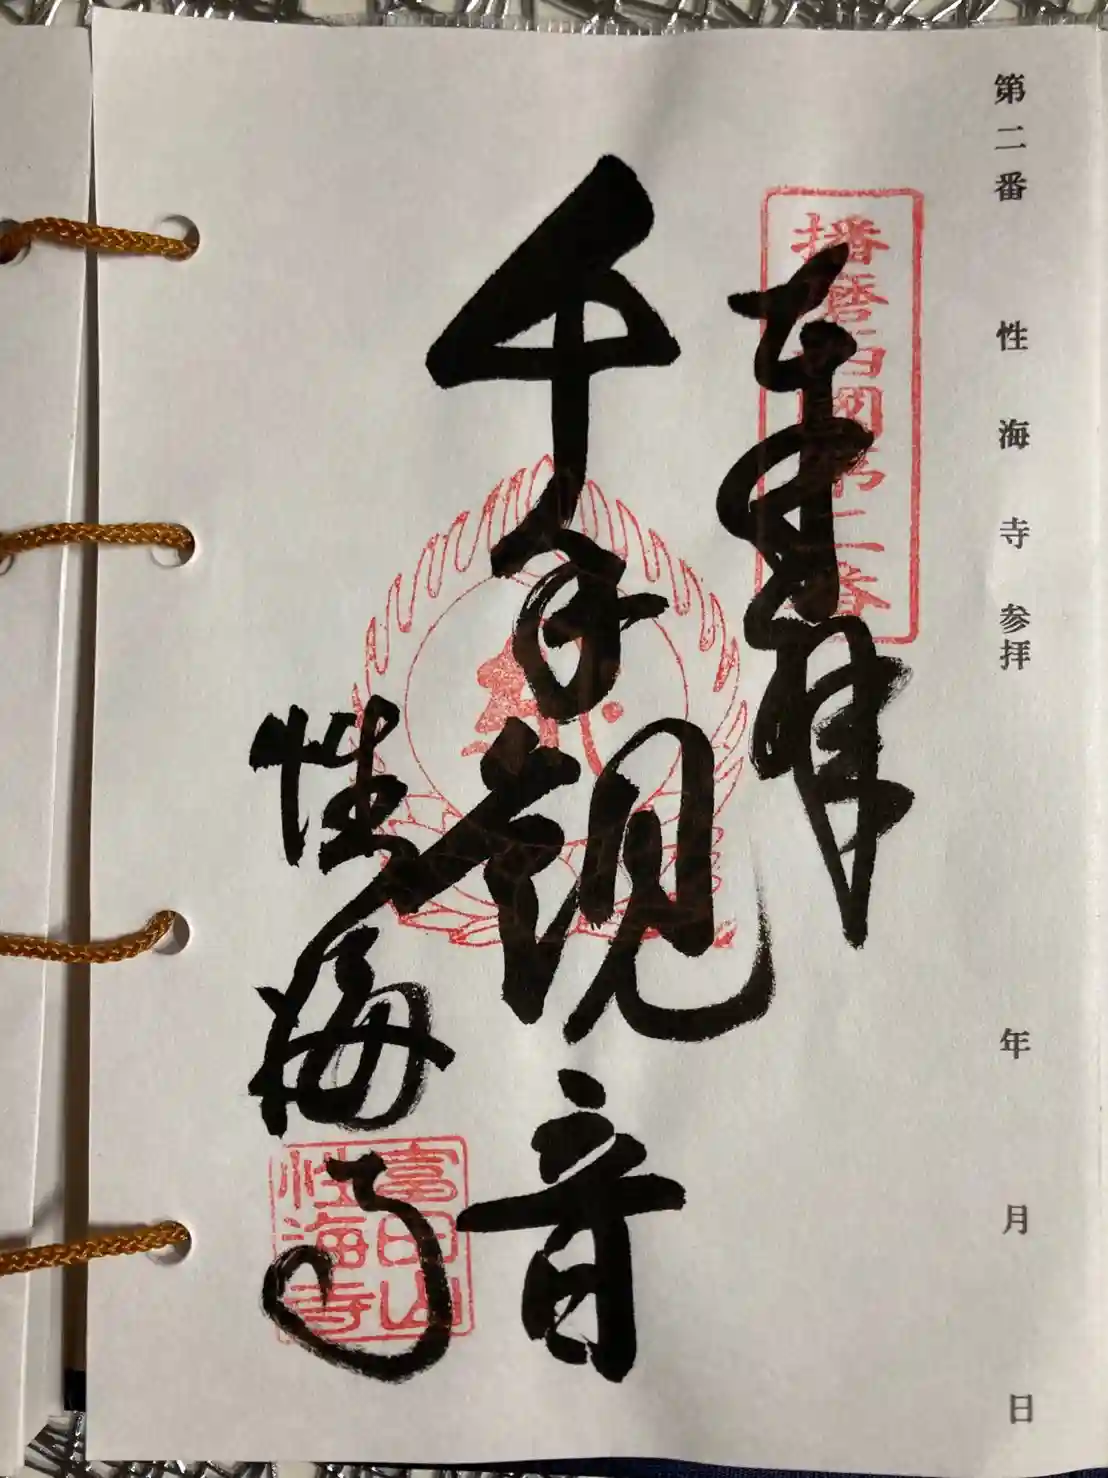 第二番 性海寺参拝 年 月 日
播磨西國第二番
奉拝
千手観音
性海寺
富田山
性海寺